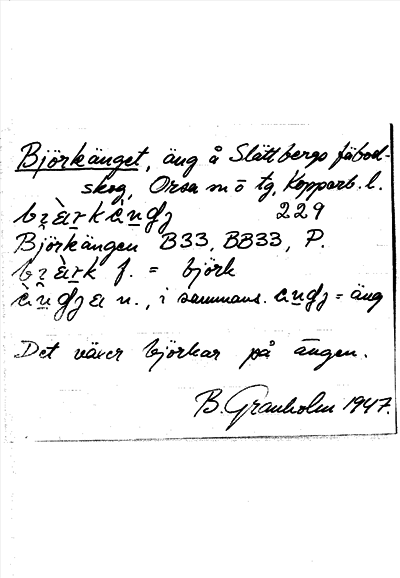 Björkänget, äng å Slättbergs fäbod-
skog, Orsa sn o tg, Kopparb. l.
229
Björkängen B33, BB33, P.
f. = björk
n., i sammans. = äng
Det växer björkar på ängen.
B. Granholm 1947.